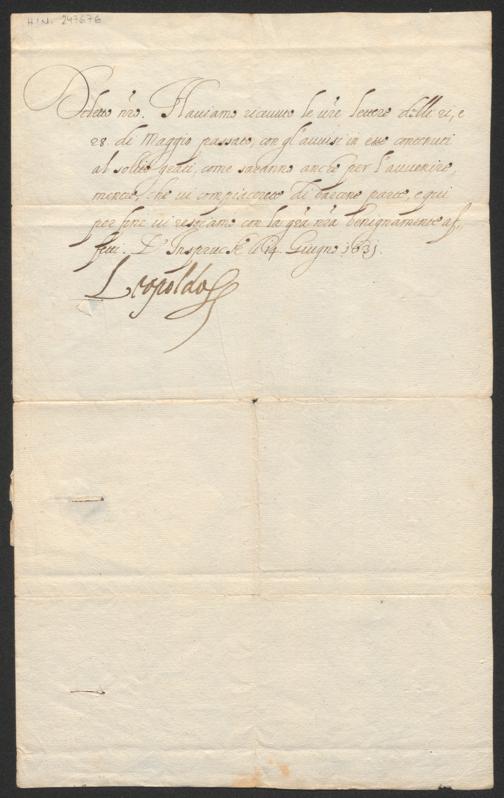 H.I.N. 247676
Diletto nro. Haviamo ricevuto le vre lettere delli 21, e
28. di Maggio passato, con gl'avvisi in esse contenuti
al solito grati, come saranno anche per l'avvenire,
mentre, che vi compiacerete di darcene parte, e qui
per fine vi restiamo con la gra nra benignamente af,,
fetti. D'Inspruck li 14. Giugno 1631.
Leopoldo